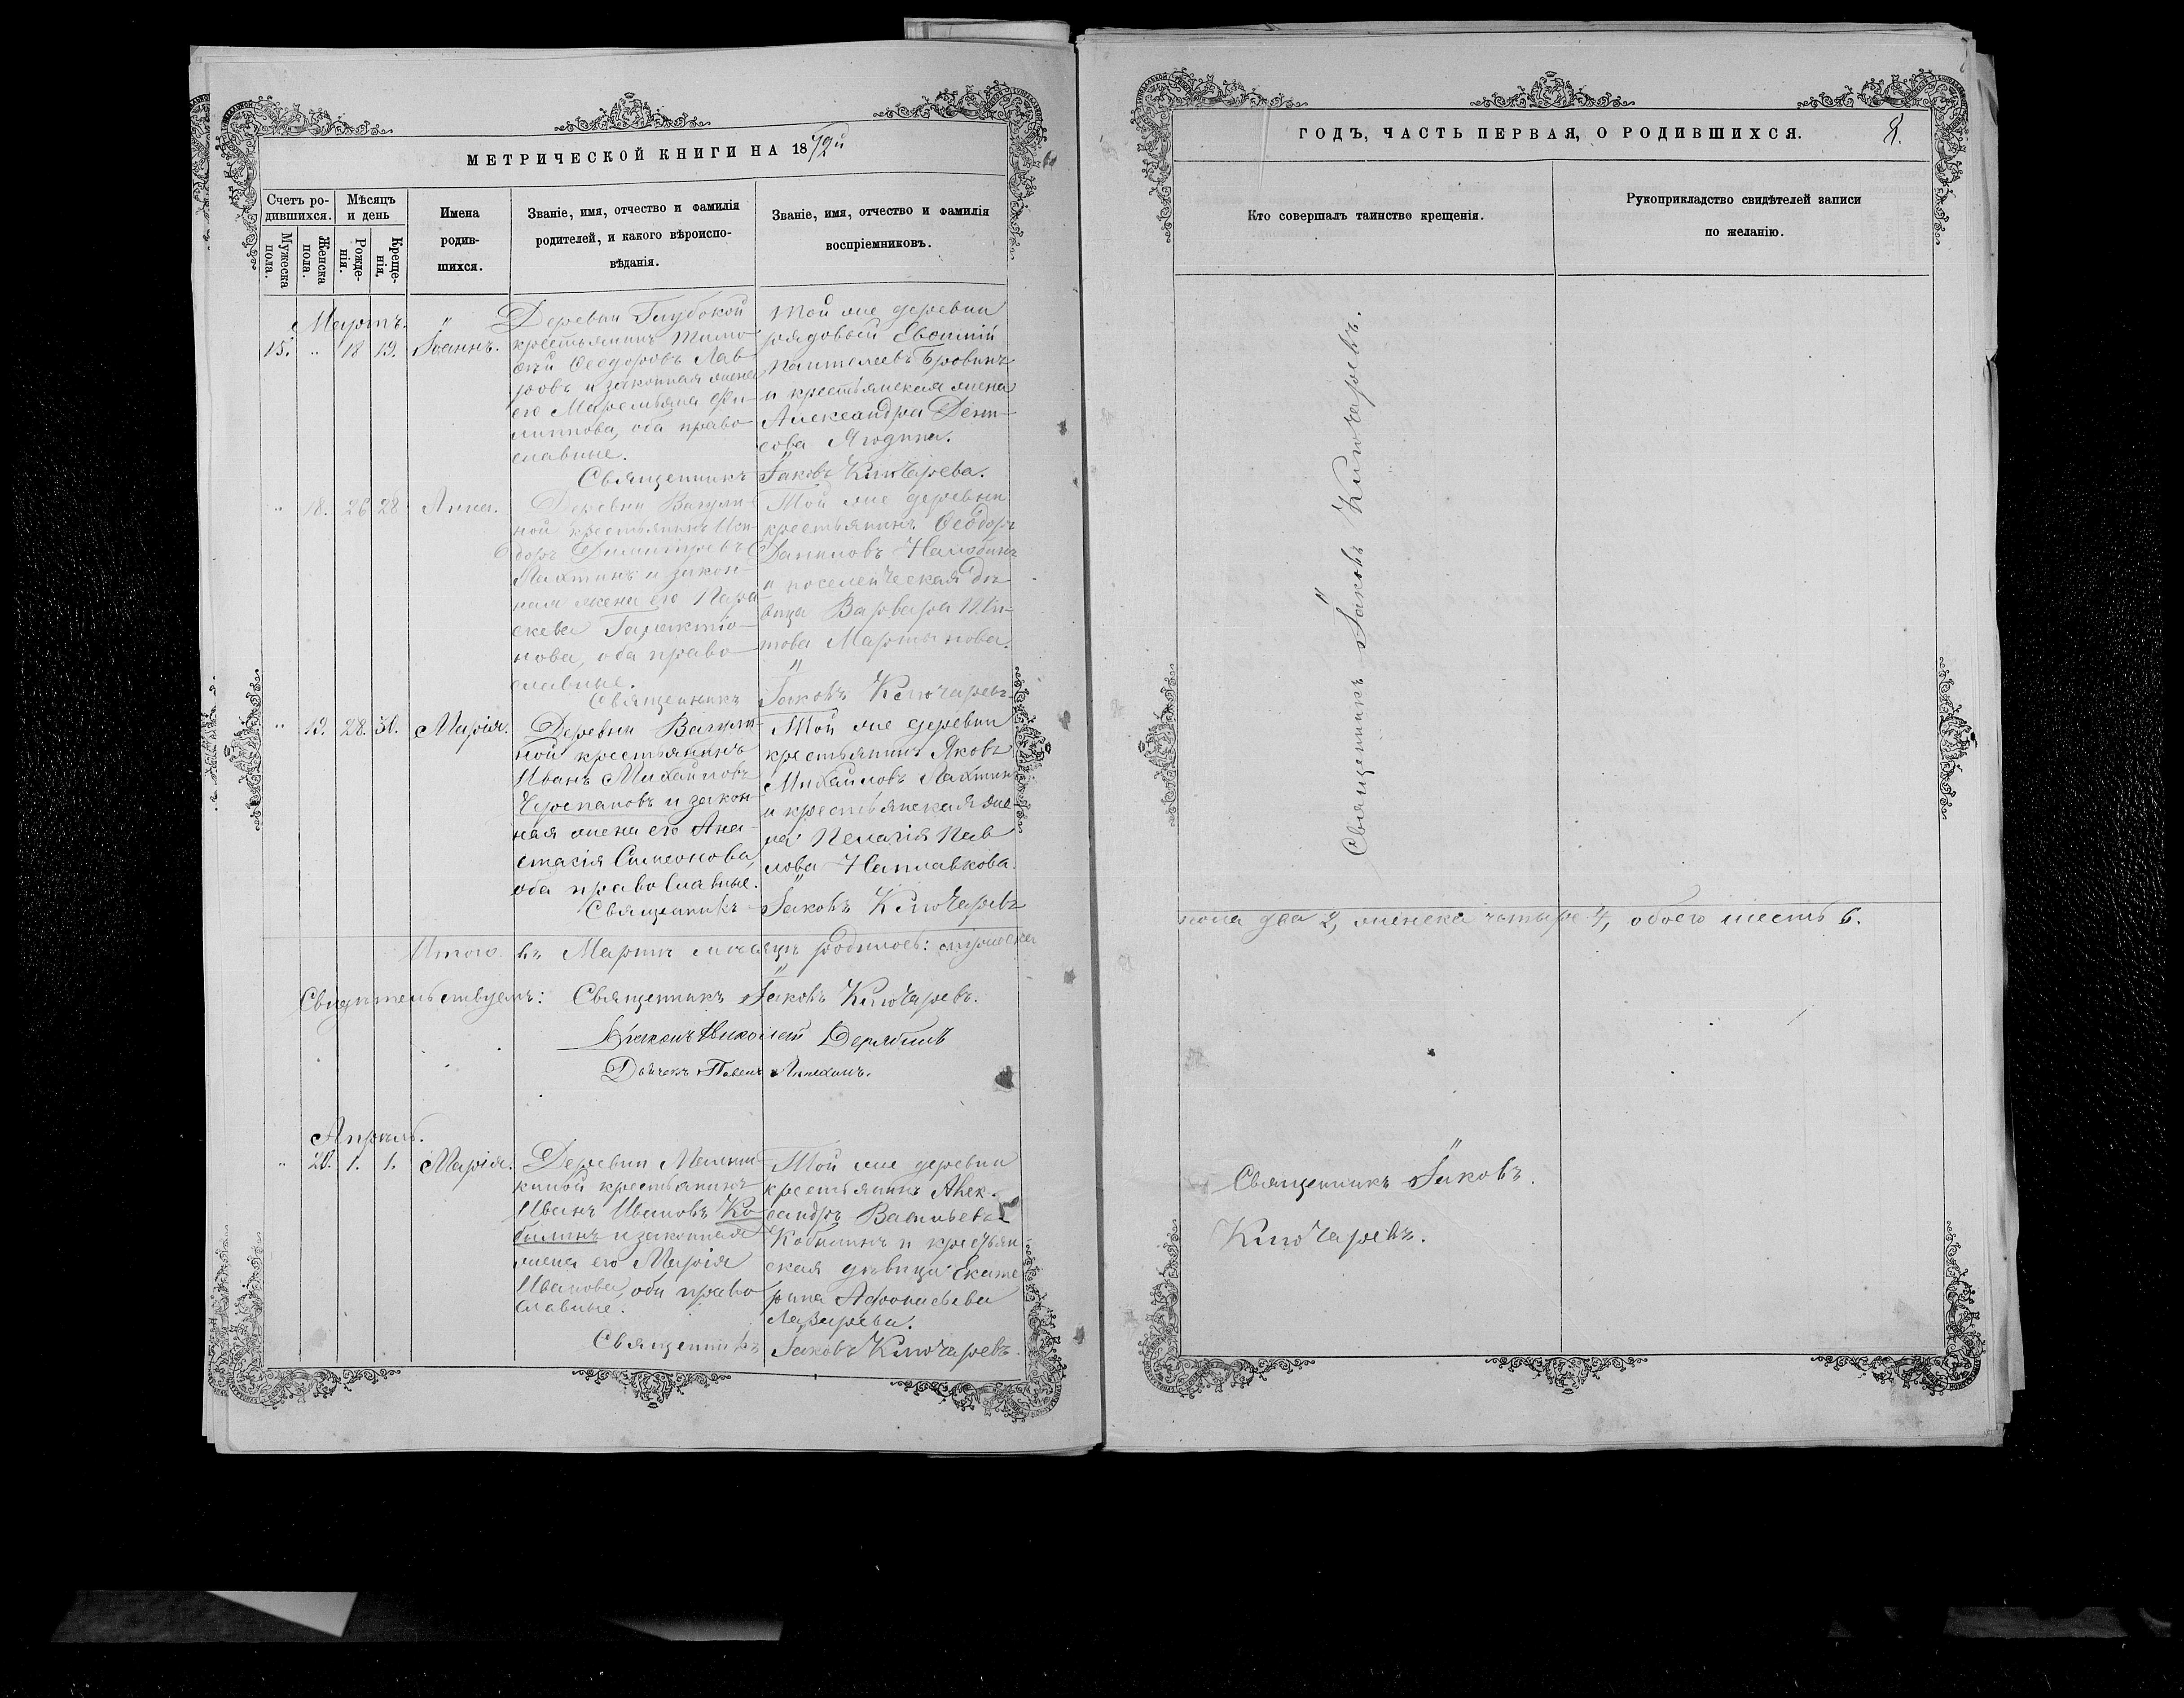 МЕТРИЧЕСКОЙ КНИГИ НА 1872й
Счетъ ро-
дившихся.
Мужеска
пола.
Женска
пола.
Мѣсяцъ
и день
Рожде-
нія.
Креще-
нія.
Имена
родив-
шихся.
Званіе, имя, отчество и фамилія
родителей, и какого вѣроиспо-
вѣданія.
Званіе, имя, отчество и фамилія
воспріемниковъ.
Мартъ.
15. " 18 19. Іоаннъ.
Деревни Глубокой
крестьянинъ Тимо-
ѳей Ѳеодоровъ Лав-
ровъ и законная жена
его Маремьяна Фи-
липпова, оба право-
славные.
Той же деревни
рядовой Евѳимій
Пантелеевъ Бровинъ
и крестьянская жена
Александра Дени-
сова Ягодина.
Священникъ Іаковъ Ключарева.
" 18. 26 28 Анна.
Деревни
ной крестьянинъ Иси-
доръ Димитріевъ
Лахтинъ и закон-
ная жена его Пара-
скева Галактіо-
нова, оба право-
славные.
Той же деревни
крестьянинъ Ѳеодоръ
Даниловъ
и поселенческая дѣ-
вица Варвара Ти-
това Мартынова.
Священникъ Іаковъ Ключаревъ
" 19. 28. 30. Марія.
Деревни
ной крестьянинъ
Иванъ Михайловъ
Черепановъ и закон-
ная жена его Ана-
стасія Симеонова,
оба православные.
Той же деревни
крестьянинъ Яковъ
Михайловъ Лахтинъ
и крестьянская же-
на Пелагія Пав-
лова Наплавкова.
Священникъ Іаковъ Ключаревъ
Итого въ Мартѣ мѣсяцѣ родилось: мужеска
Свидѣтельствуемъ: Священникъ Іаковъ Ключаревъ.
Діаконъ Николай Дерябинъ
Дьячекъ Павелъ
Апрѣль.
" 20. 1. 1. Марія.
Деревни
киной крестьянинъ
Иванъ Ивановъ Ко-
былинъ и законная
жена его Марія
Иванова, оба право-
славные.
Той же деревни
крестьянинъ Алек-
сандръ Васильевъ
Кобылинъ и крестьян-
ская дѣвица Екате-
рина Афонасьева
Лазарева.
Священникъ Іаковъ Ключаревъ.
ГОДЪ, ЧАСТЬ ПЕРВАЯ, О РОДИВШИХСЯ.
8.
Кто совершалъ таинство крещенія.
Рукоприкладство свидѣтелей записи
по желанію.
Священникъ Іаковъ Ключаревъ.
пола два 2, женска четыре 4, обоего шесть 6.
Священникъ Іаковъ
Ключаревъ.